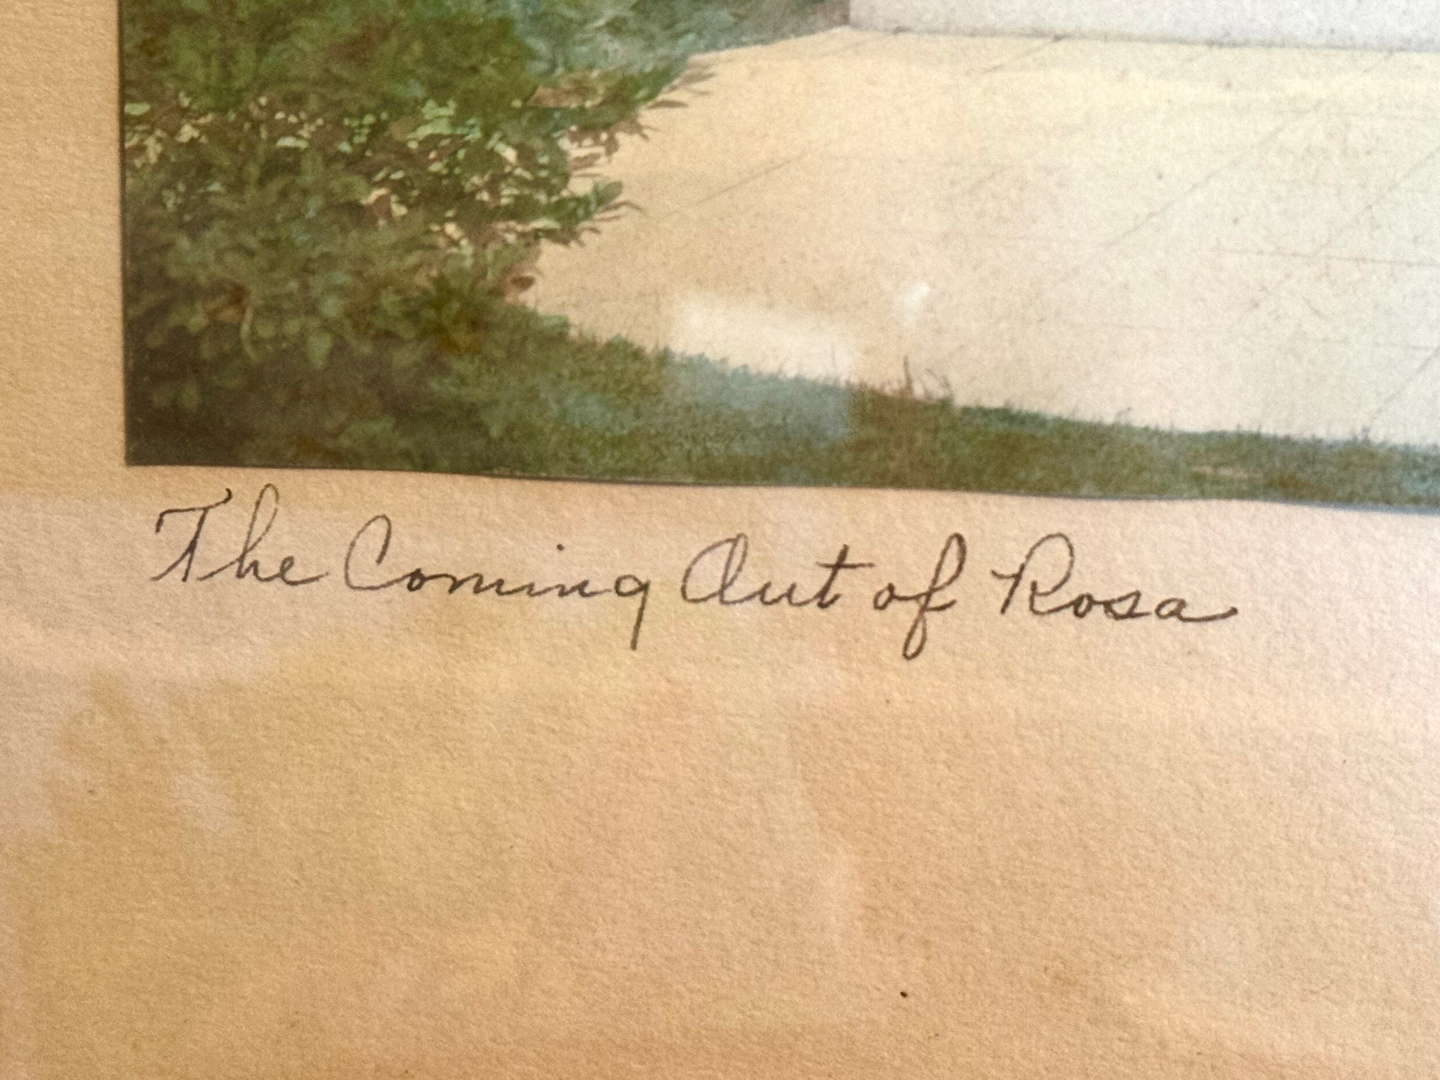 The Coming Out of Rosa